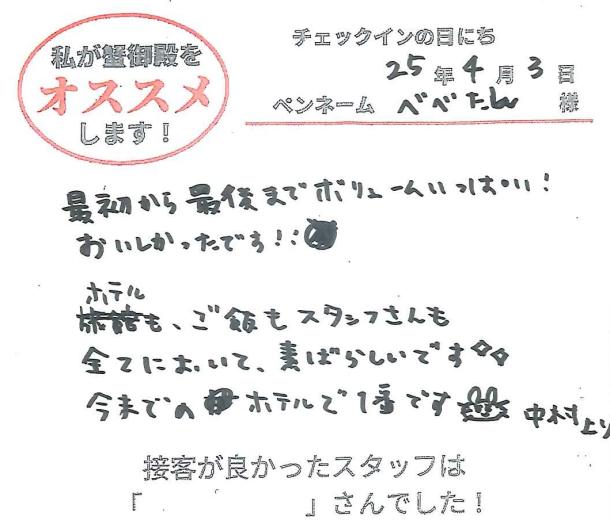 私が蟹御殿を
オススメ
します！
チェックインの日にち
25年4月3日
ペンネーム べべたん 様
最初から最後までボリュームいっぱい！
おいしかったです！！
ホテル
旅館も、ご飯もスタッフさんも
全てにおいて、素ばらしいです
今までのホテルで1番です 中村より
接客が良かったスタッフは
「 」さんでした！